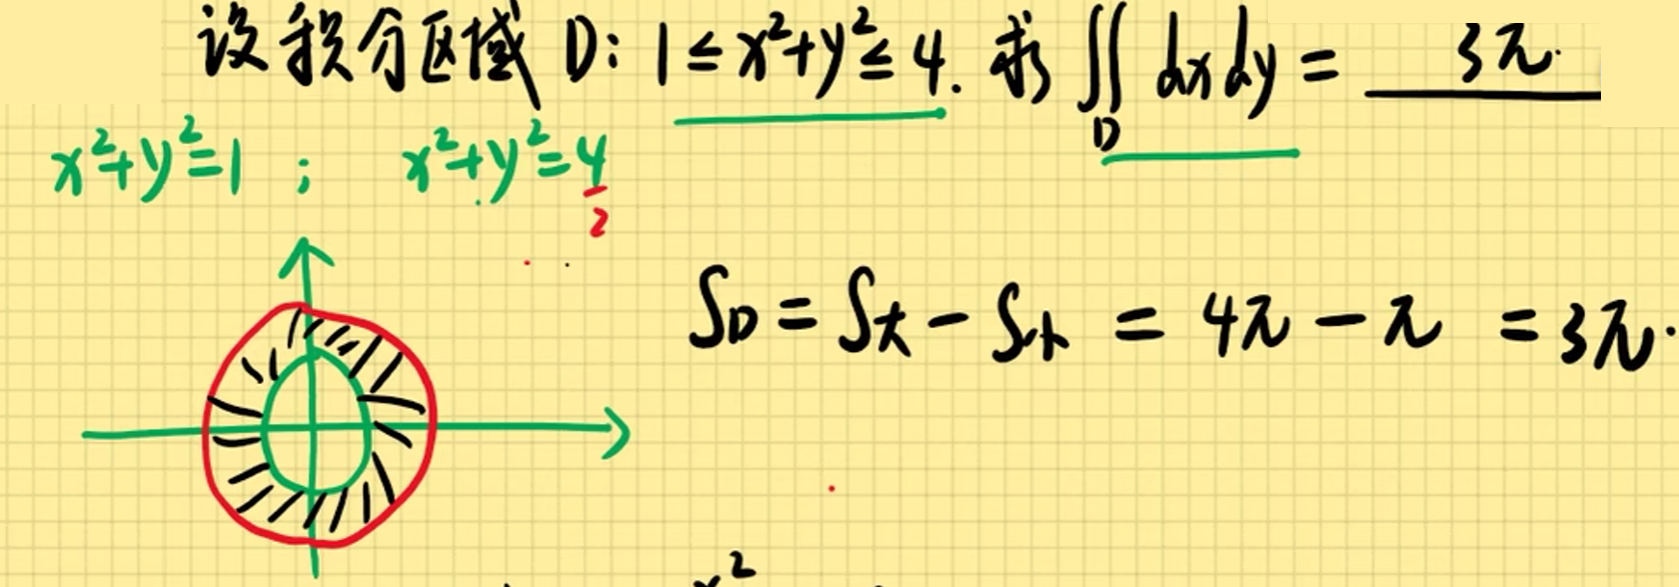 设积分区域 D: 1 ≤ x²+y² ≤ 4. 求 ∬_D dxdy = 3π.
x²+y²=1 ; x²+y²=4
2
S_D = S_大 - S_小 = 4π - π = 3π.
x²